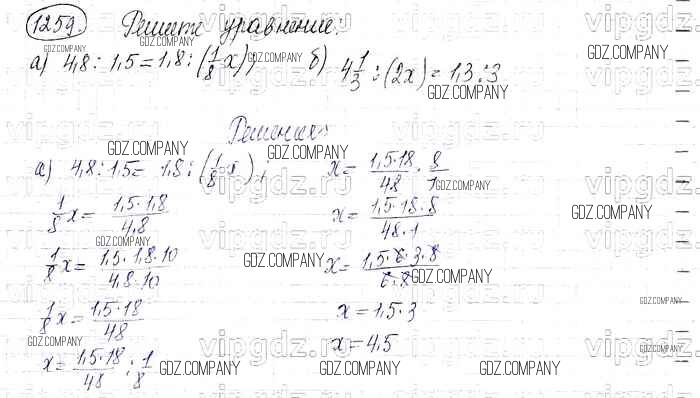 1259. Решите уравнение:
а) 4,8 : 1,5 = 1,8 : (1/8 x); б) 4 1/3 : (2x) = 1,3 : 3
Решение:
а) 4,8 : 1,5 = 1,8 : (1/8 x);
1/8 x = 1,5·1,8/4,8
1/8 x = 1,5·1,8·10/4,8·10
1/8 x = 1,5·18/48
x = 1,5·18/48 : 1/8
x = 1,5·18/48 · 8/1
x = 1,5·18·8/48·1
x = 1,5·6·3·8/6·8
x = 1,5·3
x = 4,5
GDZ.COMPANY
vipgdz.ru